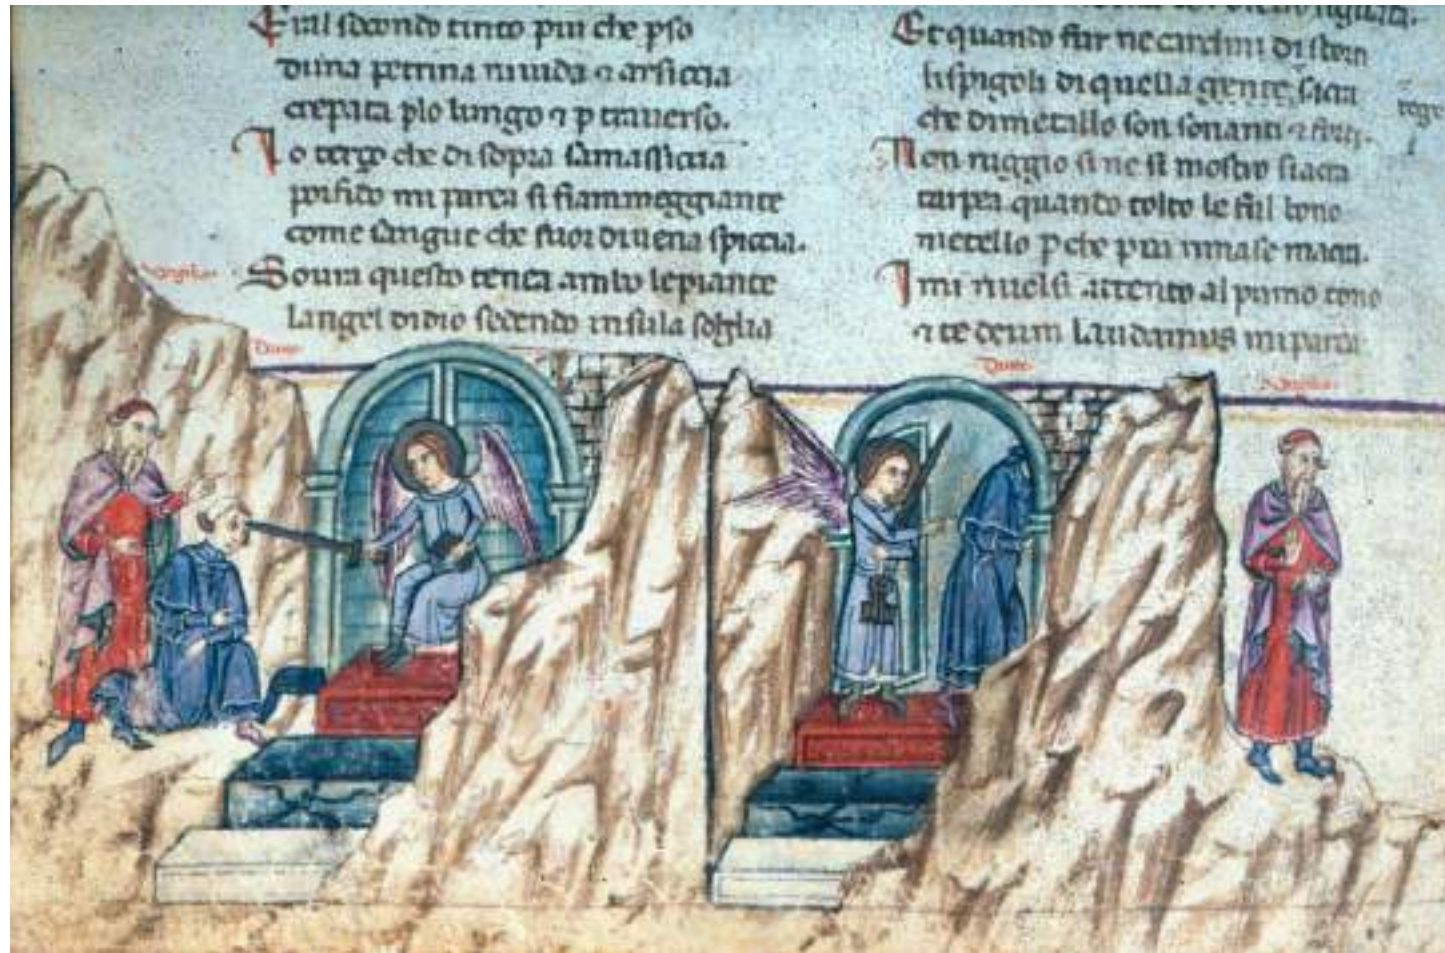 Eral secondo tinto piu che pso
duna petrina ruuida ⁊ arsiccia
crepata plo lungo ⁊ p trauerso.
Lo terço che di sopra samassiccia
porfido mi parea si fiammeggiante
come sangue che fuor diuena spiccia.
Soura questo tenea ambo lepiante
langel didio sedendo insula soglia
Et quando fur ne cardini distorti
li spigoli di quella gente sacra
rege
che dimetallo son sonanti ⁊ forti.
Non ruggio si ne si mostro si acra
tarpea quando tolto le fu il bono
metello p che poi rimase macra.
I mi riuolsi attento al primo tono
⁊ te deum laudamus mi parea
Dante
Dante